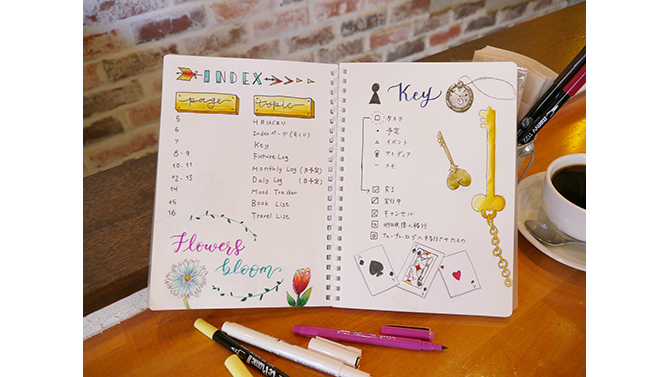 INDEX
page topic
5 4月はじまり
6 Indexページ(もくじ)
7 Key
8-9 Future Log
10-11 Monthly Log (月予定)
12-13 Daily Log (日予定)
14 Mood Tracker
15 Book List
16 Travel List
Flowers
bloom
Key
タスク
予定
イベント
アイディア
メモ
完了
実行中
キャンセル
フューチャーログへ移行させたもの